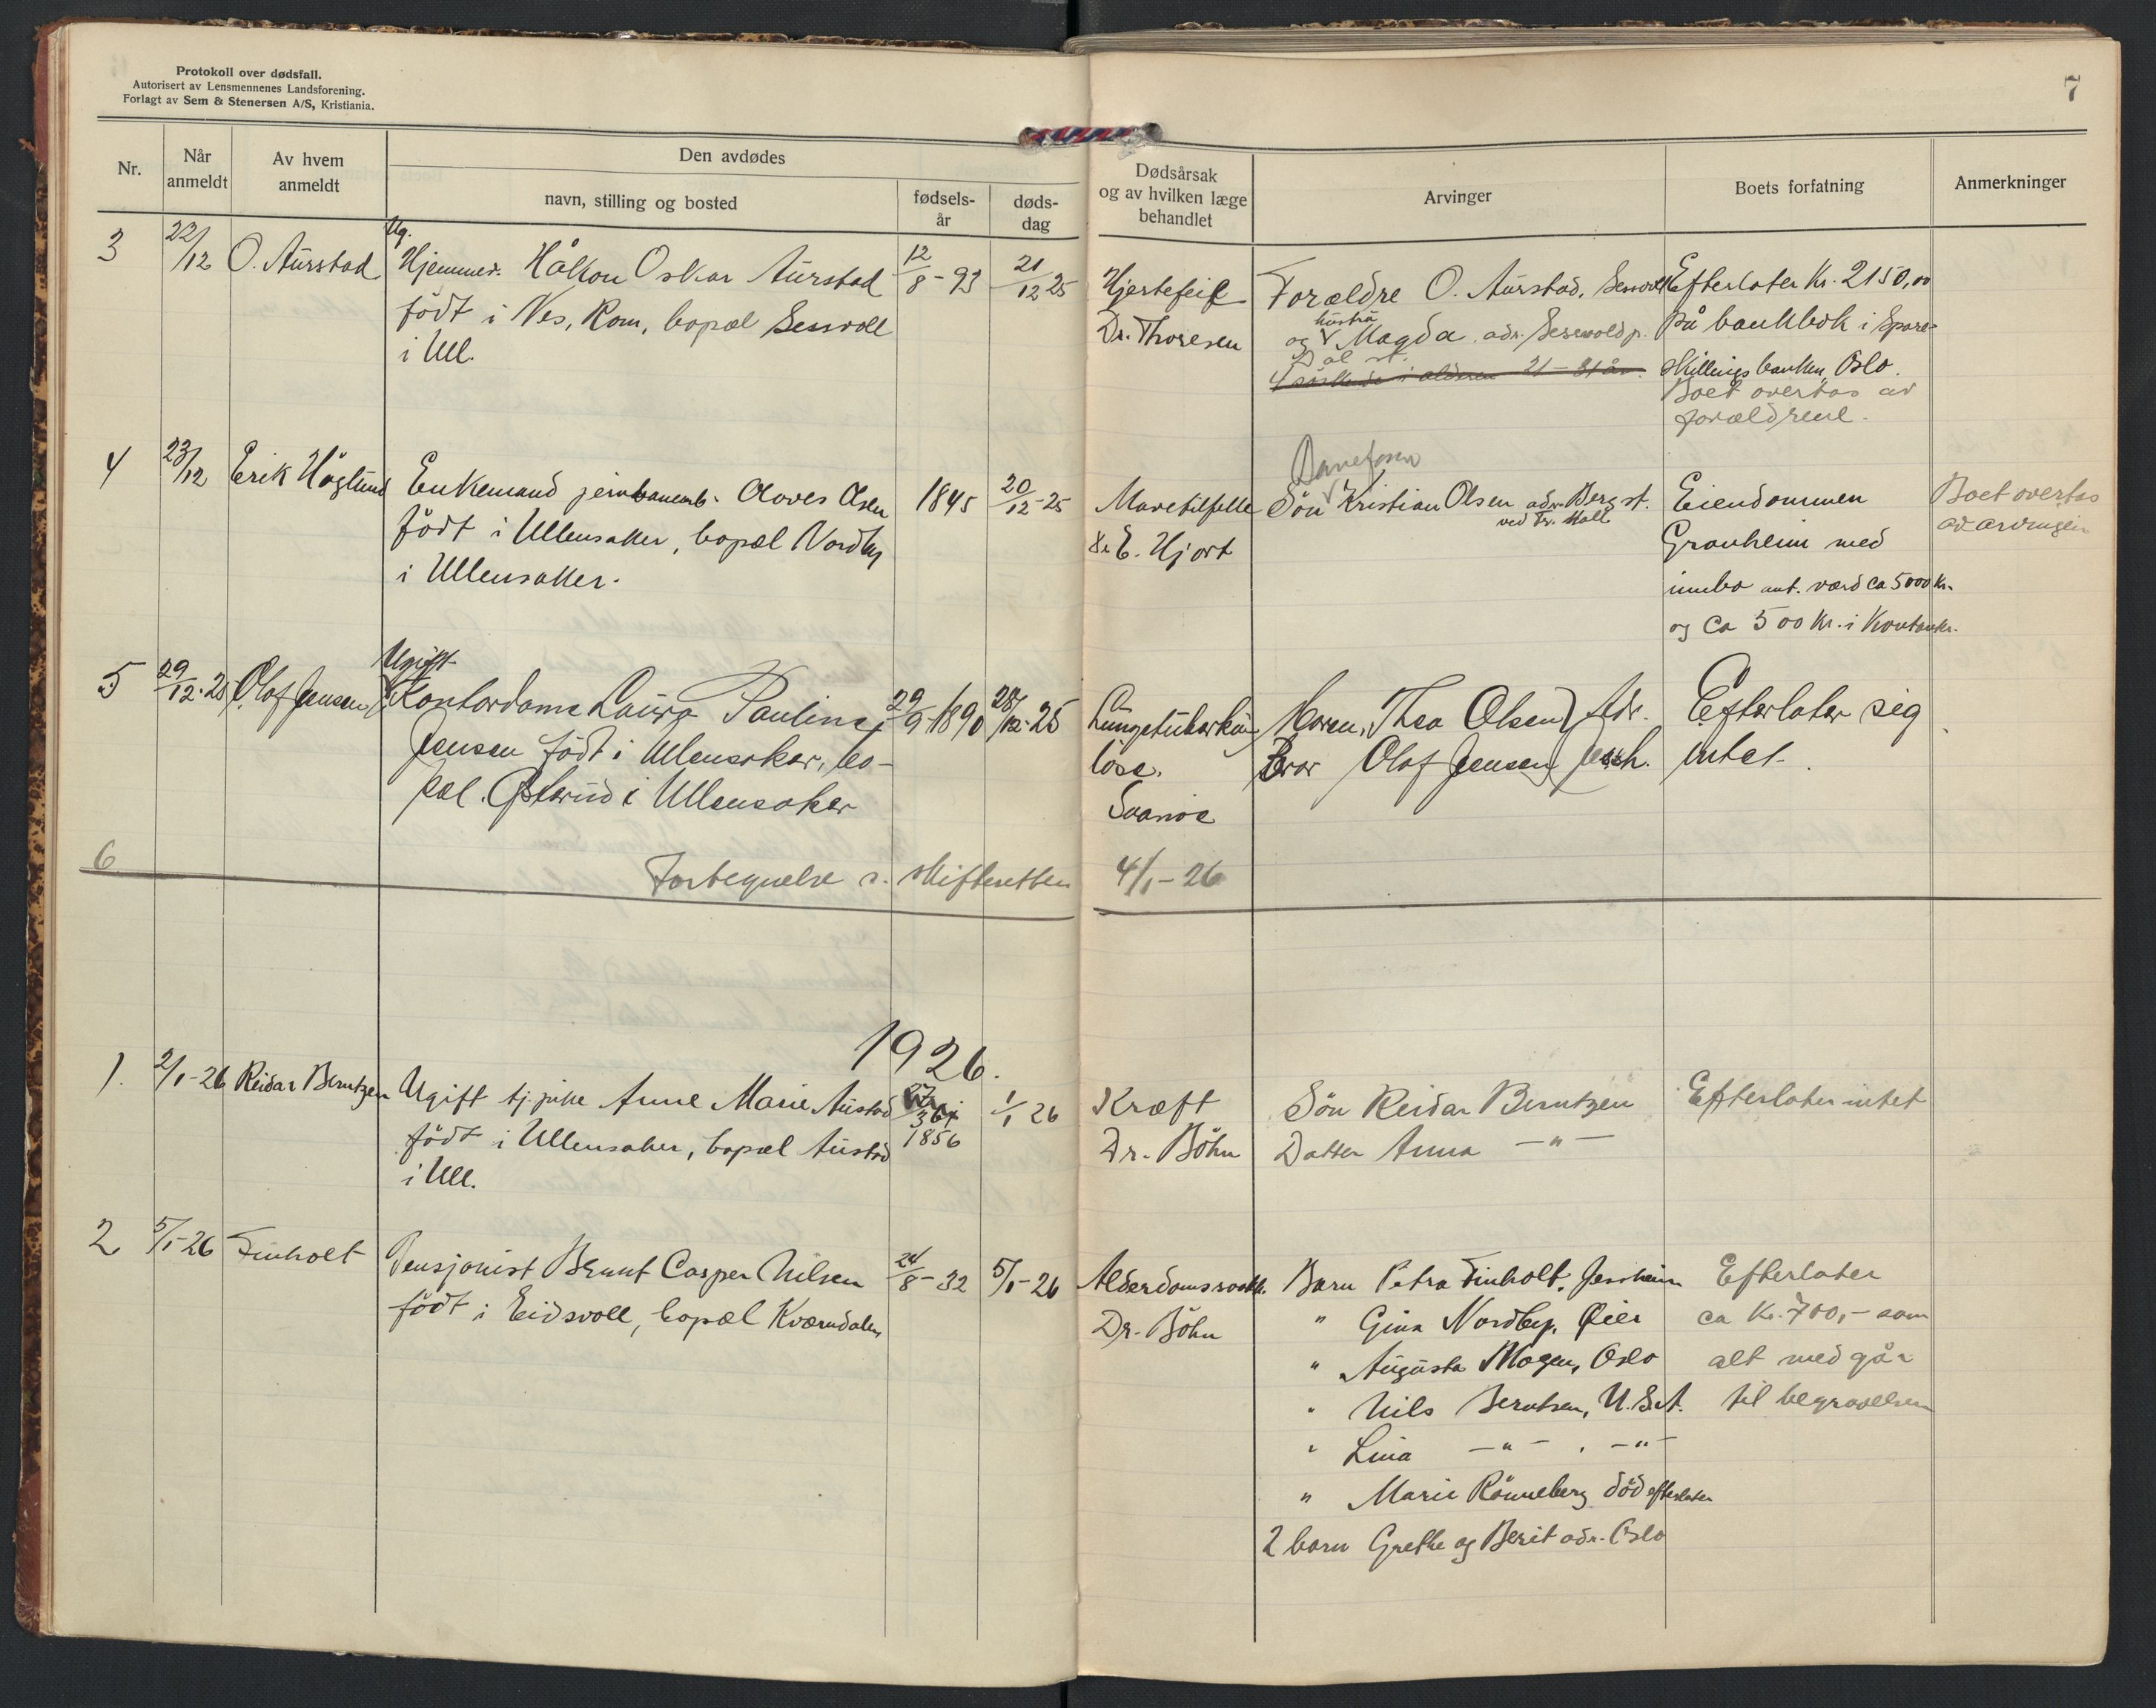 Protokoll over dødsfall.
Autorisert av Lensmennenes Landsforening.
Forlagt av Sem & Stenersen A/S, Kristiania.
7
Nr.
Når anmeldt
Av hvem anmeldt
Den avdødes
navn, stilling og bosted
fødsels-år
døds-dag
Dødsårsak og av hvilken læge behandlet
Arvinger
Boets forfatning
Anmerkninger
3 22/12 O. Aurstad
Ug.
Hjemmev. Håkon Oskar Aurstad
født i Nes, Rom, bopæl Sessvoll
i Ull.
12/8-93 21/12 25
Hjertefeil
Dr. Thoresen
Forældre O. Aurstad, Sessvoll
hustru
og Magda adr. Sessvold p.
Dal st.
4 søskende i alderen 21-31 år.
Efterlater Kr. 2150,00
på bankbok i Spare-
skillingsbanken, Oslo.
Boet overtas av
forældrene.
4 23/12 Erik Höglund
Enkemand jernbanearb. Oloves Olsen
født i Ullensaker, bopæl Nordby
i Ullensaker.
1845 20/12-25
Mavetilfelle
E. Hjort
Banefosm
Søn Kristian Olsen adr. Berg st.
ved Fr. Hall
Eiendommen
Granheim med
innbo ant. værd ca 5000 kr.
og ca 500 Kr. i Kontanter.
Boet overtas
av arvingen
5 29/12-25 Olof Jensen
Ugift
Kontordame Laura Pauline
Jensen født i Ullensaker, bo-
pæl. Østerud i Ullensaker
29/9-1890 28/12-25
Lungetuberku
lose.
Svanøe
Moren, Thea Olsen Adr.
Bror Olaf Jensen Jessh.
Efterlater sig
intet.
6 Fortegnelse s. skifteretten 4/1-26
1926.
1. 2/1-26 Reidar Berntzen
Ugift tj. pike Anne Marie Austad
født i Ullensaker, bopæl Austad
i Ull.
1856
1/1 26
Kræft
Dr. Böhn
Søn Reidar Berntzen
Datter Anna -"-
Efterlater intet
2 5/1-26 Finholt
Pensjonist Bernt Casper Nilsen
født i Eidsvoll, bopæl Kværndalen
24/8-32 5/1-26
Alderdomssvakh.
Dr. Böhn
Barn Petra Finholt, Jessheim
" Gina Nordby, Øier
" Augusta Mogen, Oslo
" Nils Berntsen, U.S.A.
" Lina -"- , -"-
" Marie Rønneberg død efterlater
2 barn Grethe og Berit adr. Oslo
Efterlater
ca Kr. 700,- som
alt medgår
til begravelsen